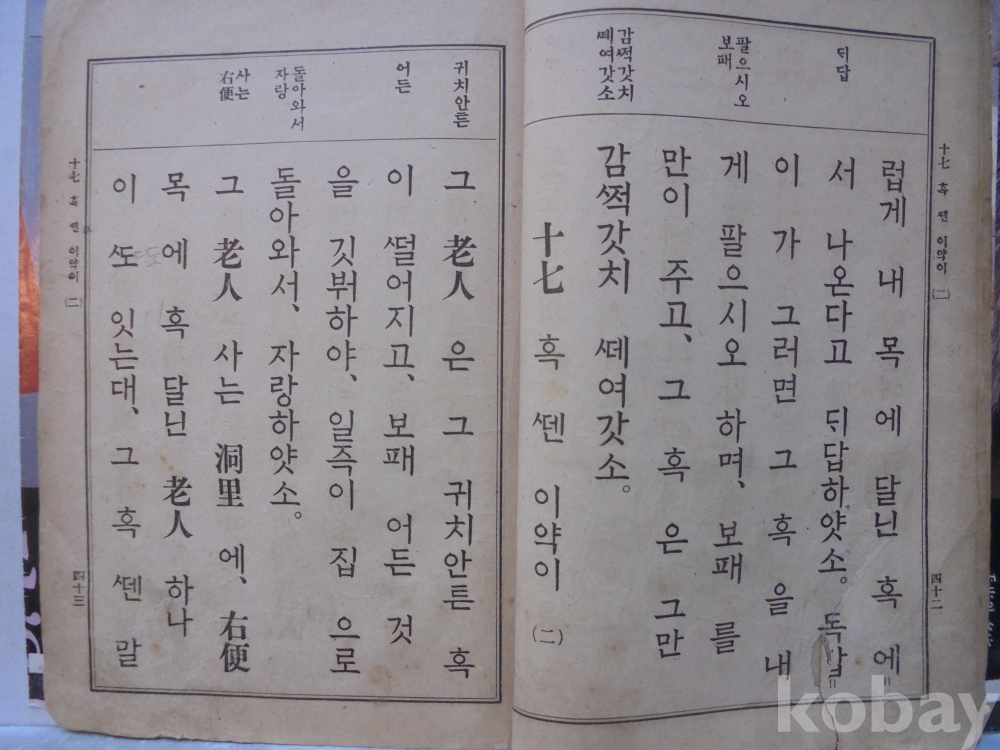 十七 혹 ᄯᅦᆫ 이약이 (二)
四十二
ᄃᆡ답
팔으시오
보패
감ᄶᅥᆨ갓치
ᄯᅦ여갓소
럽게 내 목 에 달닌 혹 에=
서 나온다고 ᄃᆡ답하얏소。 독갑=
이 가 그러면 그 혹 을 내
게 팔으시오 하며、 보패 를
만이 주고、 그 혹 은 그만
감ᄶᅥᆨ갓치 ᄯᅦ여갓소。
十七 혹 ᄯᅦᆫ 이약이 (二)
귀치안튼
어든
돌아와서
자랑
사는
右便
그 老人 은 그 귀치안튼 혹
이 ᄯᅥᆯ어지고、 보패 어든 것
을 깃버하야、 일즉이 집 으로
돌아와서、 자랑하얏소。
그 老人 사는 洞里 에、 右便
목 에 혹 달닌 老人 하나
이 ᄯᅩ 잇는대、 그 혹 ᄯᅦᆫ 말
十七 혹 ᄯᅦᆫ 이약이 (二)
四十三
kobay